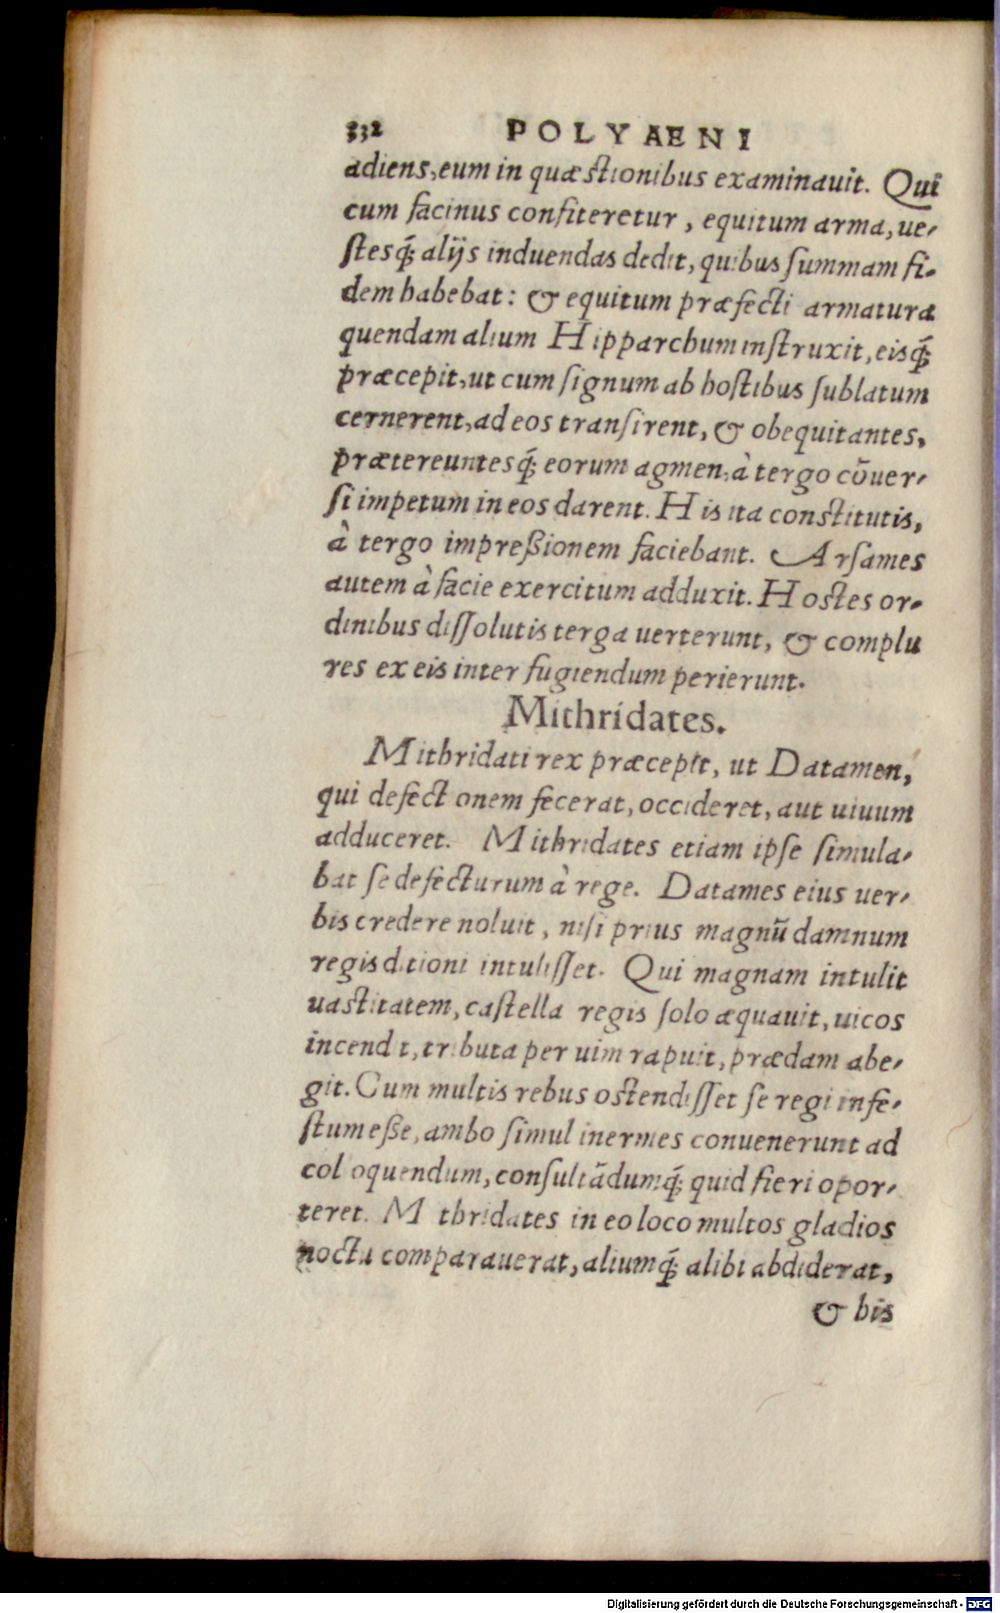 332 POLYAENI
adiens, eum in quæstionibus examinauit. Qui
cum facinus confiteretur, equitum arma, ue-
ſtesq́; alijs induendas dedit, quibus ſummam fi-
dem habebat: & equitum præfecti armatura
quendam alium Hipparchum inſtruxit, eisq́;
præcepit, ut cum ſignum ab hoſtibus ſublatum
cernerent, ad eos tranſirent, & obequitantes,
prætereuntesq́; eorum agmen, à tergo cōuer-
ſi impetum in eos darent. His ita conſtitutis,
à tergo impreßionem faciebant. Arſames
autem à facie exercitum adduxit. Hostes or-
dinibus diſſolutis terga uerterunt, & complu
res ex eis inter fugiendum perierunt.
Mithridates.
Mithridati rex præcepit, ut Datamen,
qui defect onem fecerat, occideret, aut uiuum
adduceret. Mithridates etiam ipſe ſimula-
bat ſe defecturum à rege. Datames eius uer-
bis credere noluit, niſi prius magnū damnum
regis ditioni intuliſſet. Qui magnam intulit
uastitatem, caſtella regis ſolo æquauit, uicos
incend t, tributa per uim rapuit, prædam abe-
git. Cum multis rebus ostendiſſet ſe regi infe-
ſtum eße, ambo ſimul inermes conuenerunt ad
col oquendum, conſultādumq́; quid fieri opor-
teret. M thridates in eo loco multos gladios
noctu comparauerat, aliumq́; alibi abdiderat,
& his
Digitalisierung gefördert durch die Deutsche Forschungsgemeinschaft - DFG